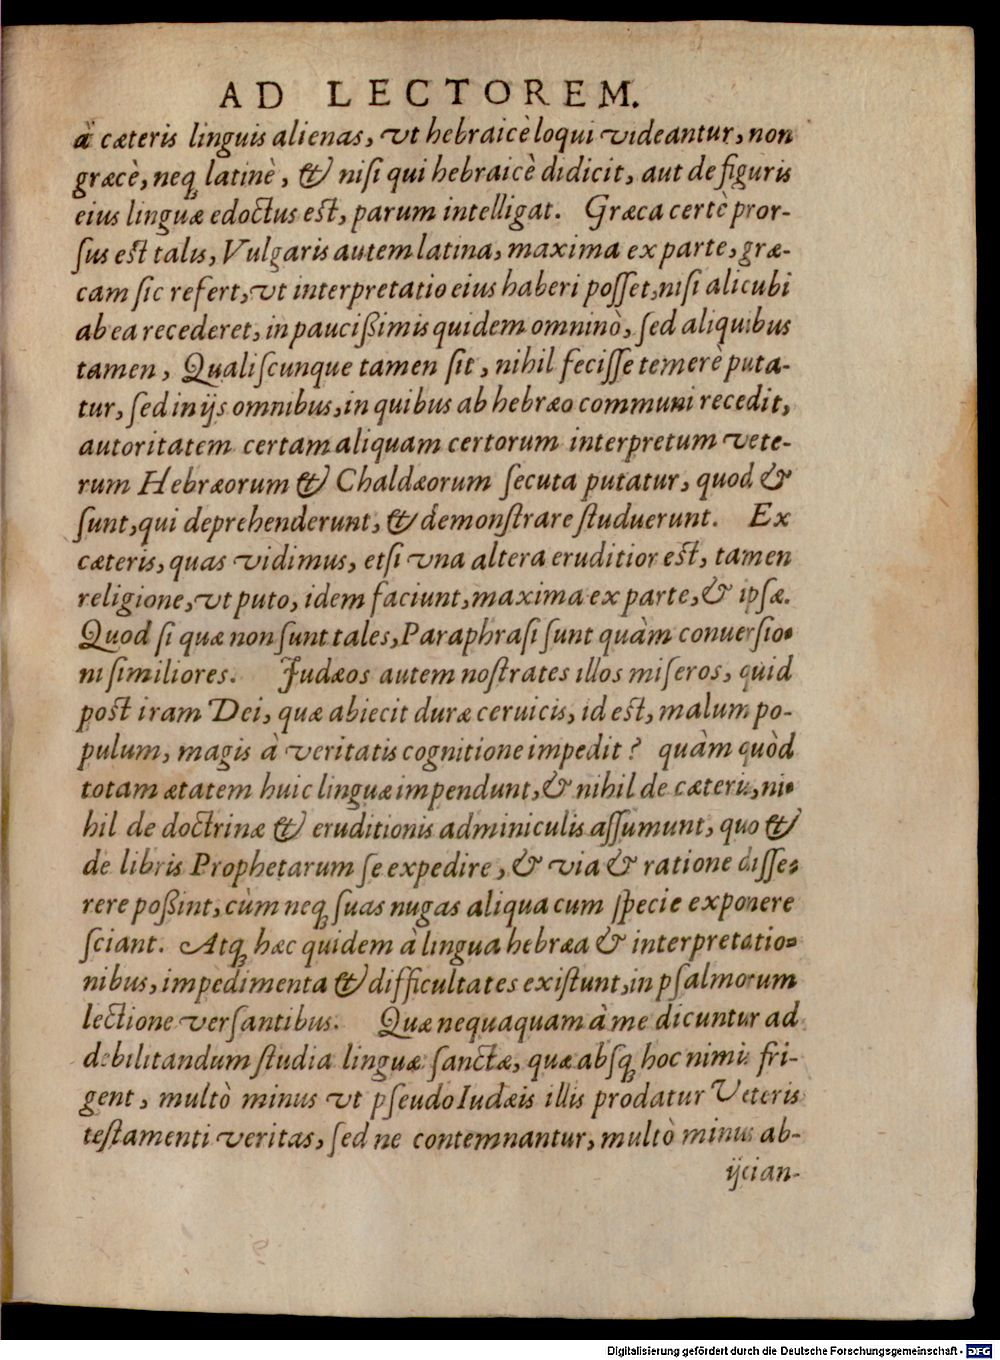 AD LECTOREM.
à cæteris linguis alienas, vt hebraicè loqui videantur, non
græcè, neq; latinè, & nisi qui hebraicè didicit, aut de figuris
eius linguæ edoctus est, parum intelligat. Græca certè pror-
sus est talis, Vulgaris autem latina, maxima ex parte, græ-
cam sic refert, vt interpretatio eius haberi posset, nisi alicubi
ab ea recederet, in paucißimis quidem omninò, sed aliquibus
tamen, Qualiscunque tamen sit, nihil fecisse temerè puta-
tur, sed in ijs omnibus, in quibus ab hebræo communi recedit,
autoritatem certam aliquam certorum interpretum vete-
rum Hebræorum & Chaldæorum secuta putatur, quod &
sunt, qui deprehenderunt, & demonstrare studuerunt. Ex
cæteris, quas vidimus, etsi vna altera eruditior est, tamen
religione, vt puto, idem faciunt, maxima ex parte, & ipsæ.
Quod si quæ non sunt tales, Paraphrasi sunt quàm conuersio-
ni similiores. Judæos autem nostrates illos miseros, quid
post iram Dei, quæ abiecit duræ ceruicis, id est, malum po-
pulum, magis à veritatis cognitione impedit? quàm quòd
totam ætatem huic linguæ impendunt, & nihil de cæteris, ni-
hil de doctrinæ & eruditionis adminiculis assumunt, quo &
de libris Prophetarum se expedire, & via & ratione disse-
rere poßint, cùm neq; suas nugas aliqua cum specie exponere
sciant. Atq; hæc quidem à lingua hebræa & interpretatio-
nibus, impedimenta & difficultates existunt, in psalmorum
lectione versantibus. Quæ nequaquam à me dicuntur ad
debilitandum studia linguæ sanctæ, quæ absq; hoc nimis fri-
gent, multò minus vt pseudo Iudæis illis prodatur Veteris
testamenti veritas, sed ne contemnantur, multò minus ab-
ijcian-
Digitalisierung gefördert durch die Deutsche Forschungsgemeinschaft - DFG